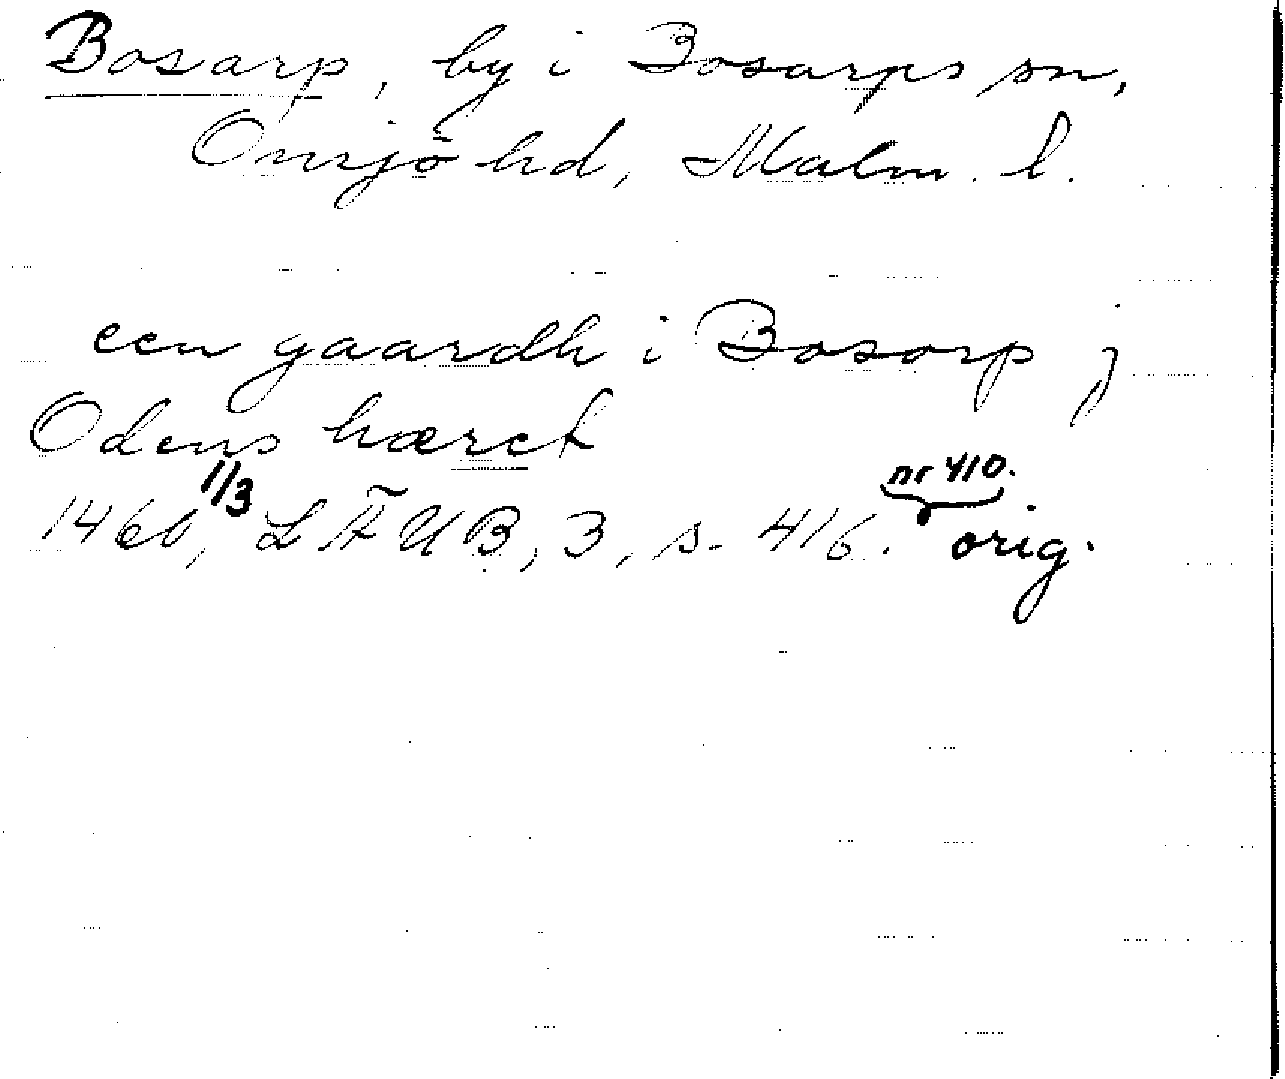 Bosarp, by i Bosarps sn,
Onsjö hd, Malm. l.
een gaardh i Bosorp j
Odens hæret
1460 1/3, LÄUB, 3, s. 416. nr 410. orig.